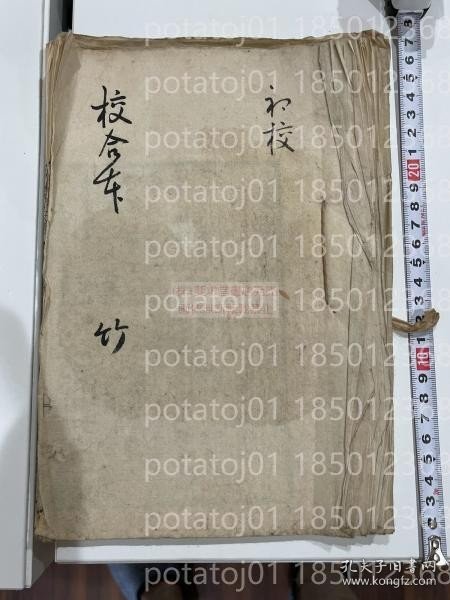 初校
校合本
竹
potatoj01 1850123686
potatoj01 1850123686
potatoj01 1850123686
potatoj01 1850123686
potatoj01 1850123686
potatoj01 1850123686
potatoj01 1850123686
potatoj01 1850123686
孔夫子旧书网
www.kongfz.com